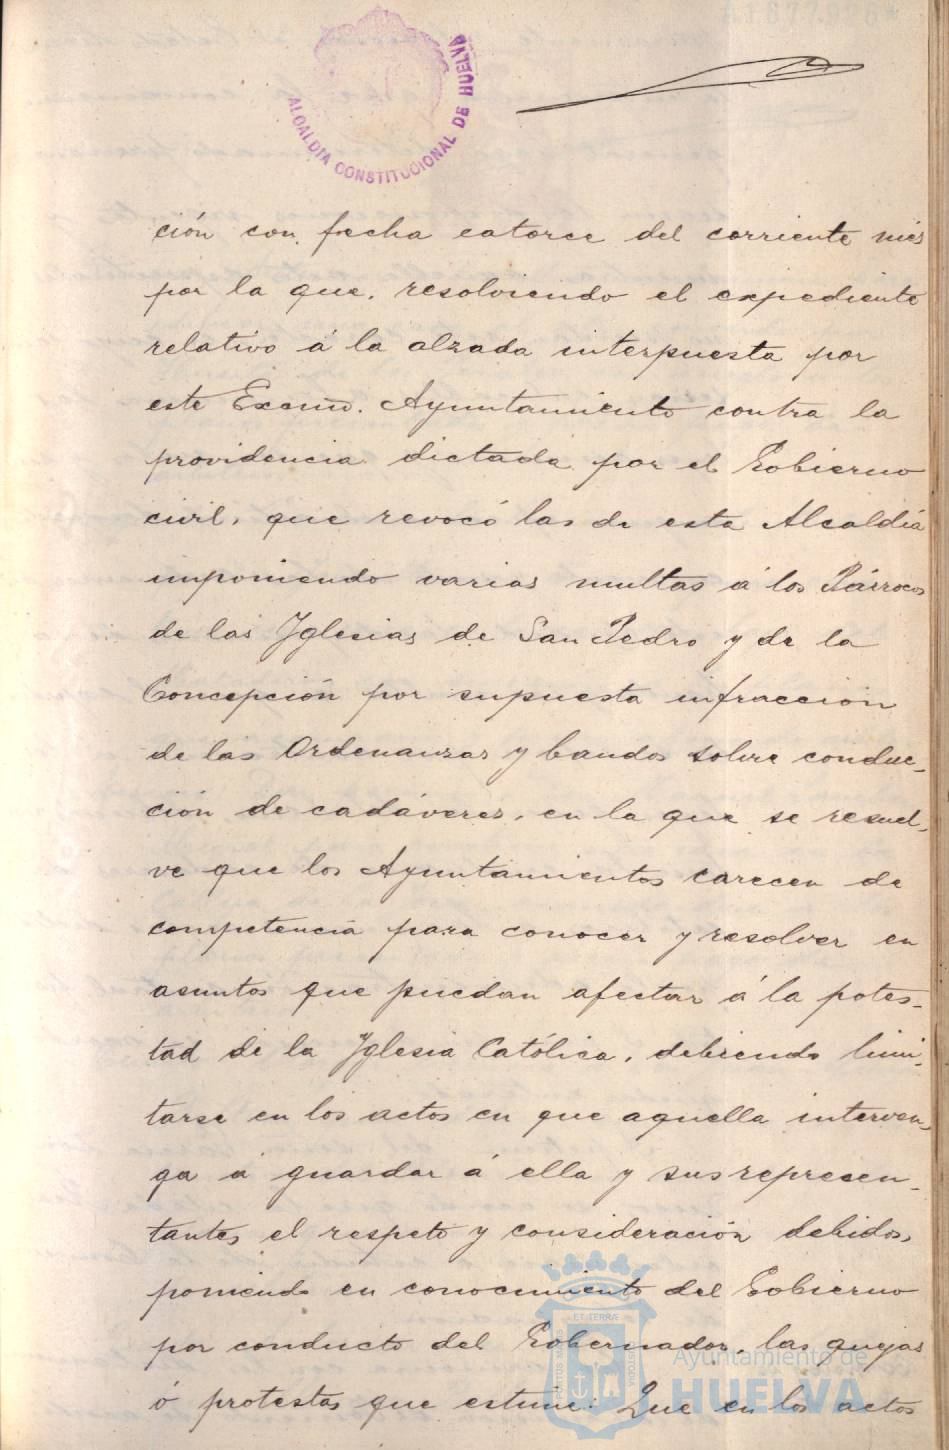 A1677926*
ALCALDÍA CONSTITUCIONAL DE HUELVA
ción con fecha catorce del corriente mes
por la que, resolviendo el expediente
relativo á la alzada interpuesta por
este Excmo. Ayuntamiento contra la
providencia dictada por el Gobierno
civil, que revocó las de esta Alcaldía
imponiendo varias multas á los Párrocos
de las Yglesias de San Pedro y de la
Concepción por supuesta infracción
de las Ordenanzas y bandos sobre conduc-
ción de cadáveres, en la que se resuel-
ve que los Ayuntamientos carecen de
competencia para conocer y resolver en
asuntos que puedan afectar á la potes-
tad de la Yglesia Católica, debiendo limi-
tarse en los actos en que aquella interven-
ga á guardar á ella y sus represen-
tantes el respeto y consideración debidos,
poniendo en conocimiento del Gobierno
por conducto del Gobernador, las quejas
ó protestas que estime: Que en los actos
ET TERRÆ
PORTUS MARIS
CUSTODIA
Ayuntamiento de
HUELVA